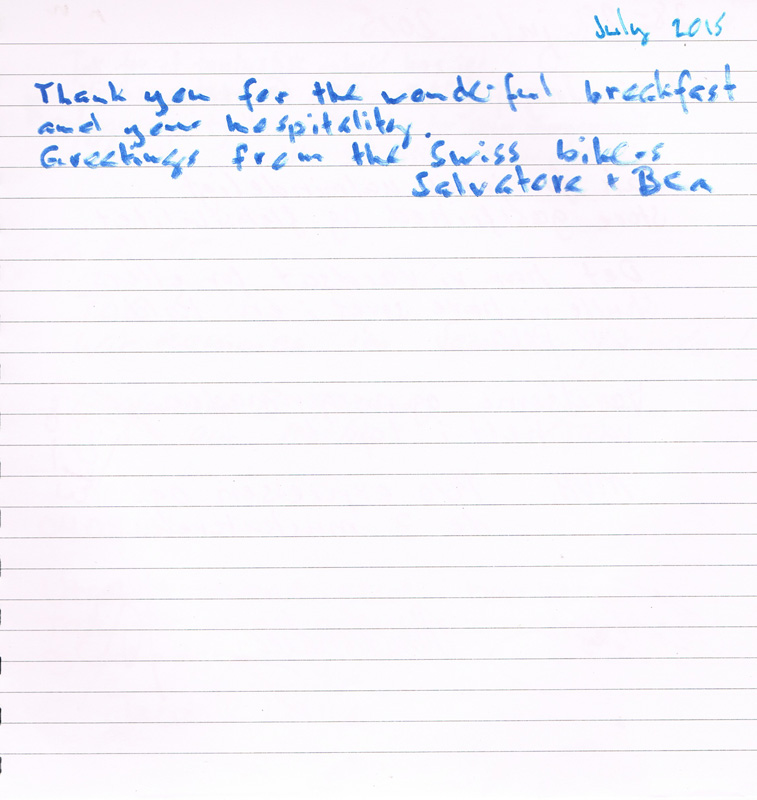 July 2015
Thank you for the wonderful breakfast
and your hospitality.
Greetings from the Swiss bikers
Salvatore + Ben